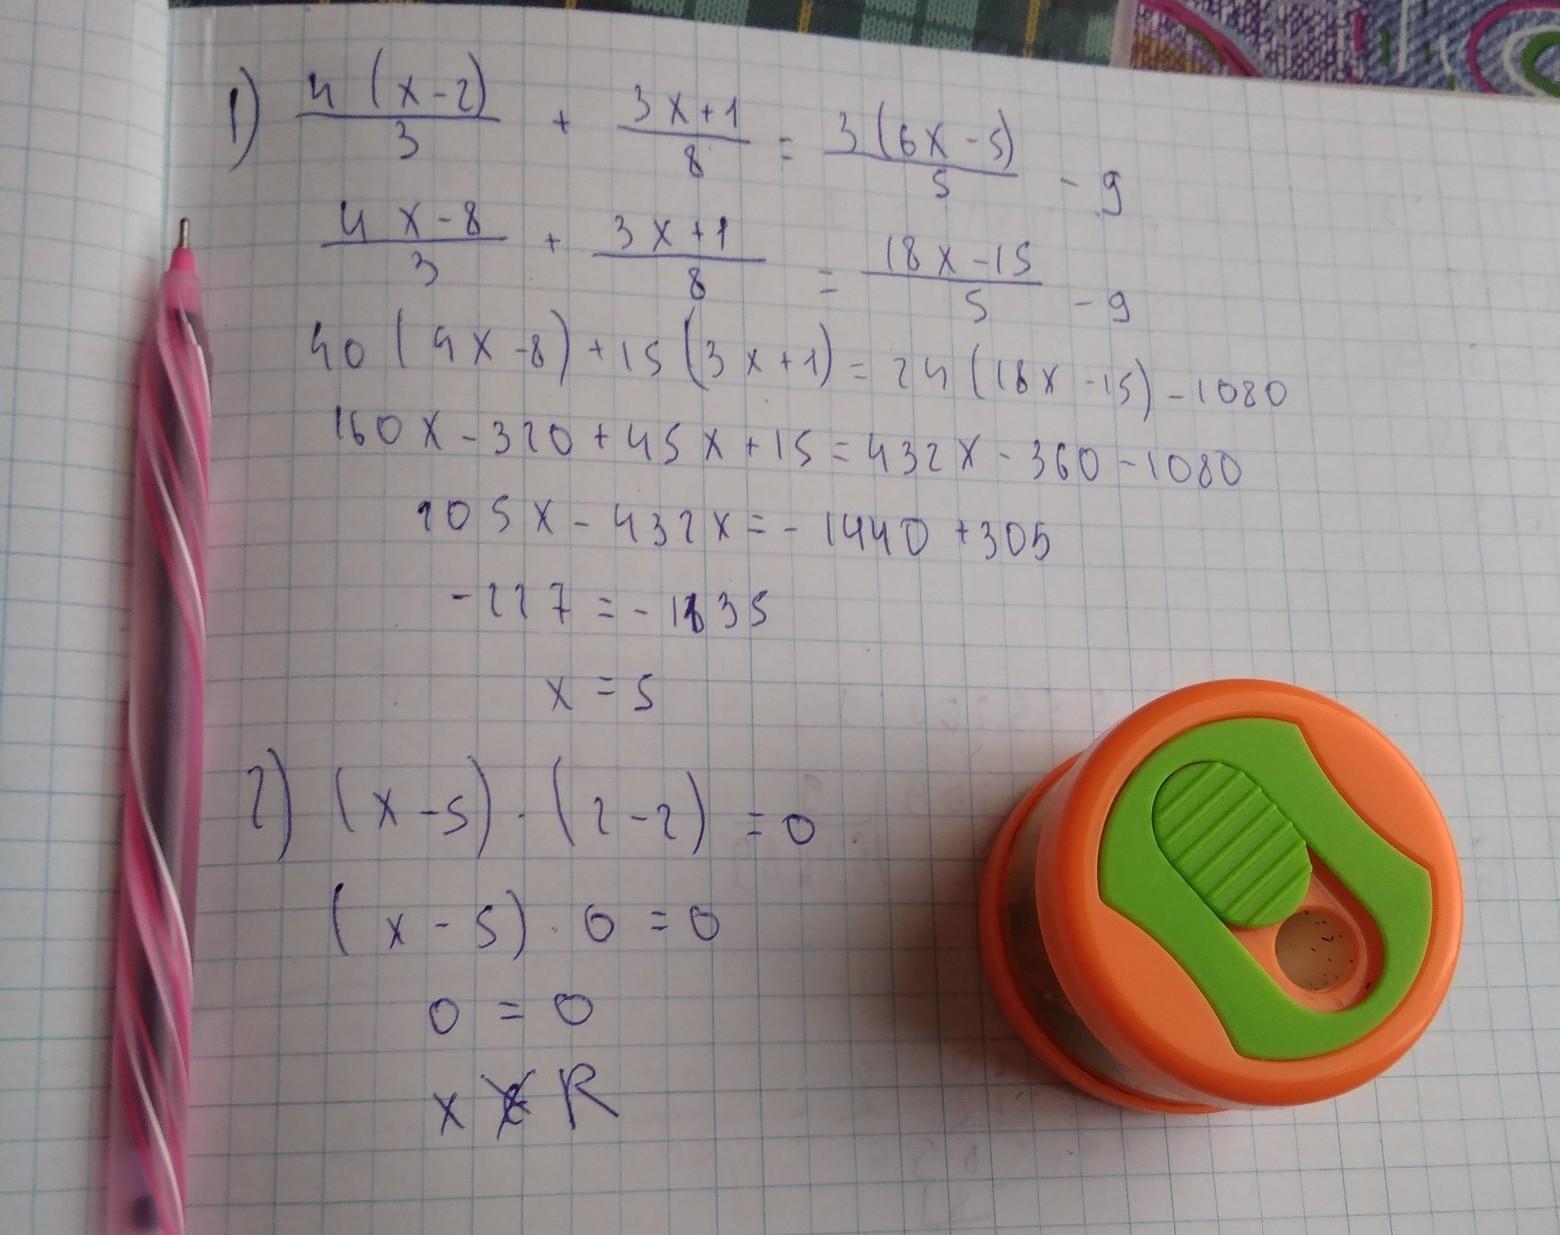 1) 4(x-2)/3 + 3x+1/8 = 3(6x-5)/5 - 9
4x-8/3 + 3x+1/8 = 18x-15/5 - 9
40(4x-8)+15(3x+1)=24(18x-15)-1080
160x-320+45x+15=432x-360-1080
205x-432x=-1440+305
-227=-1135
x=5
2) (x-5)·(2-2)=0
(x-5)·0=0
0=0
x R